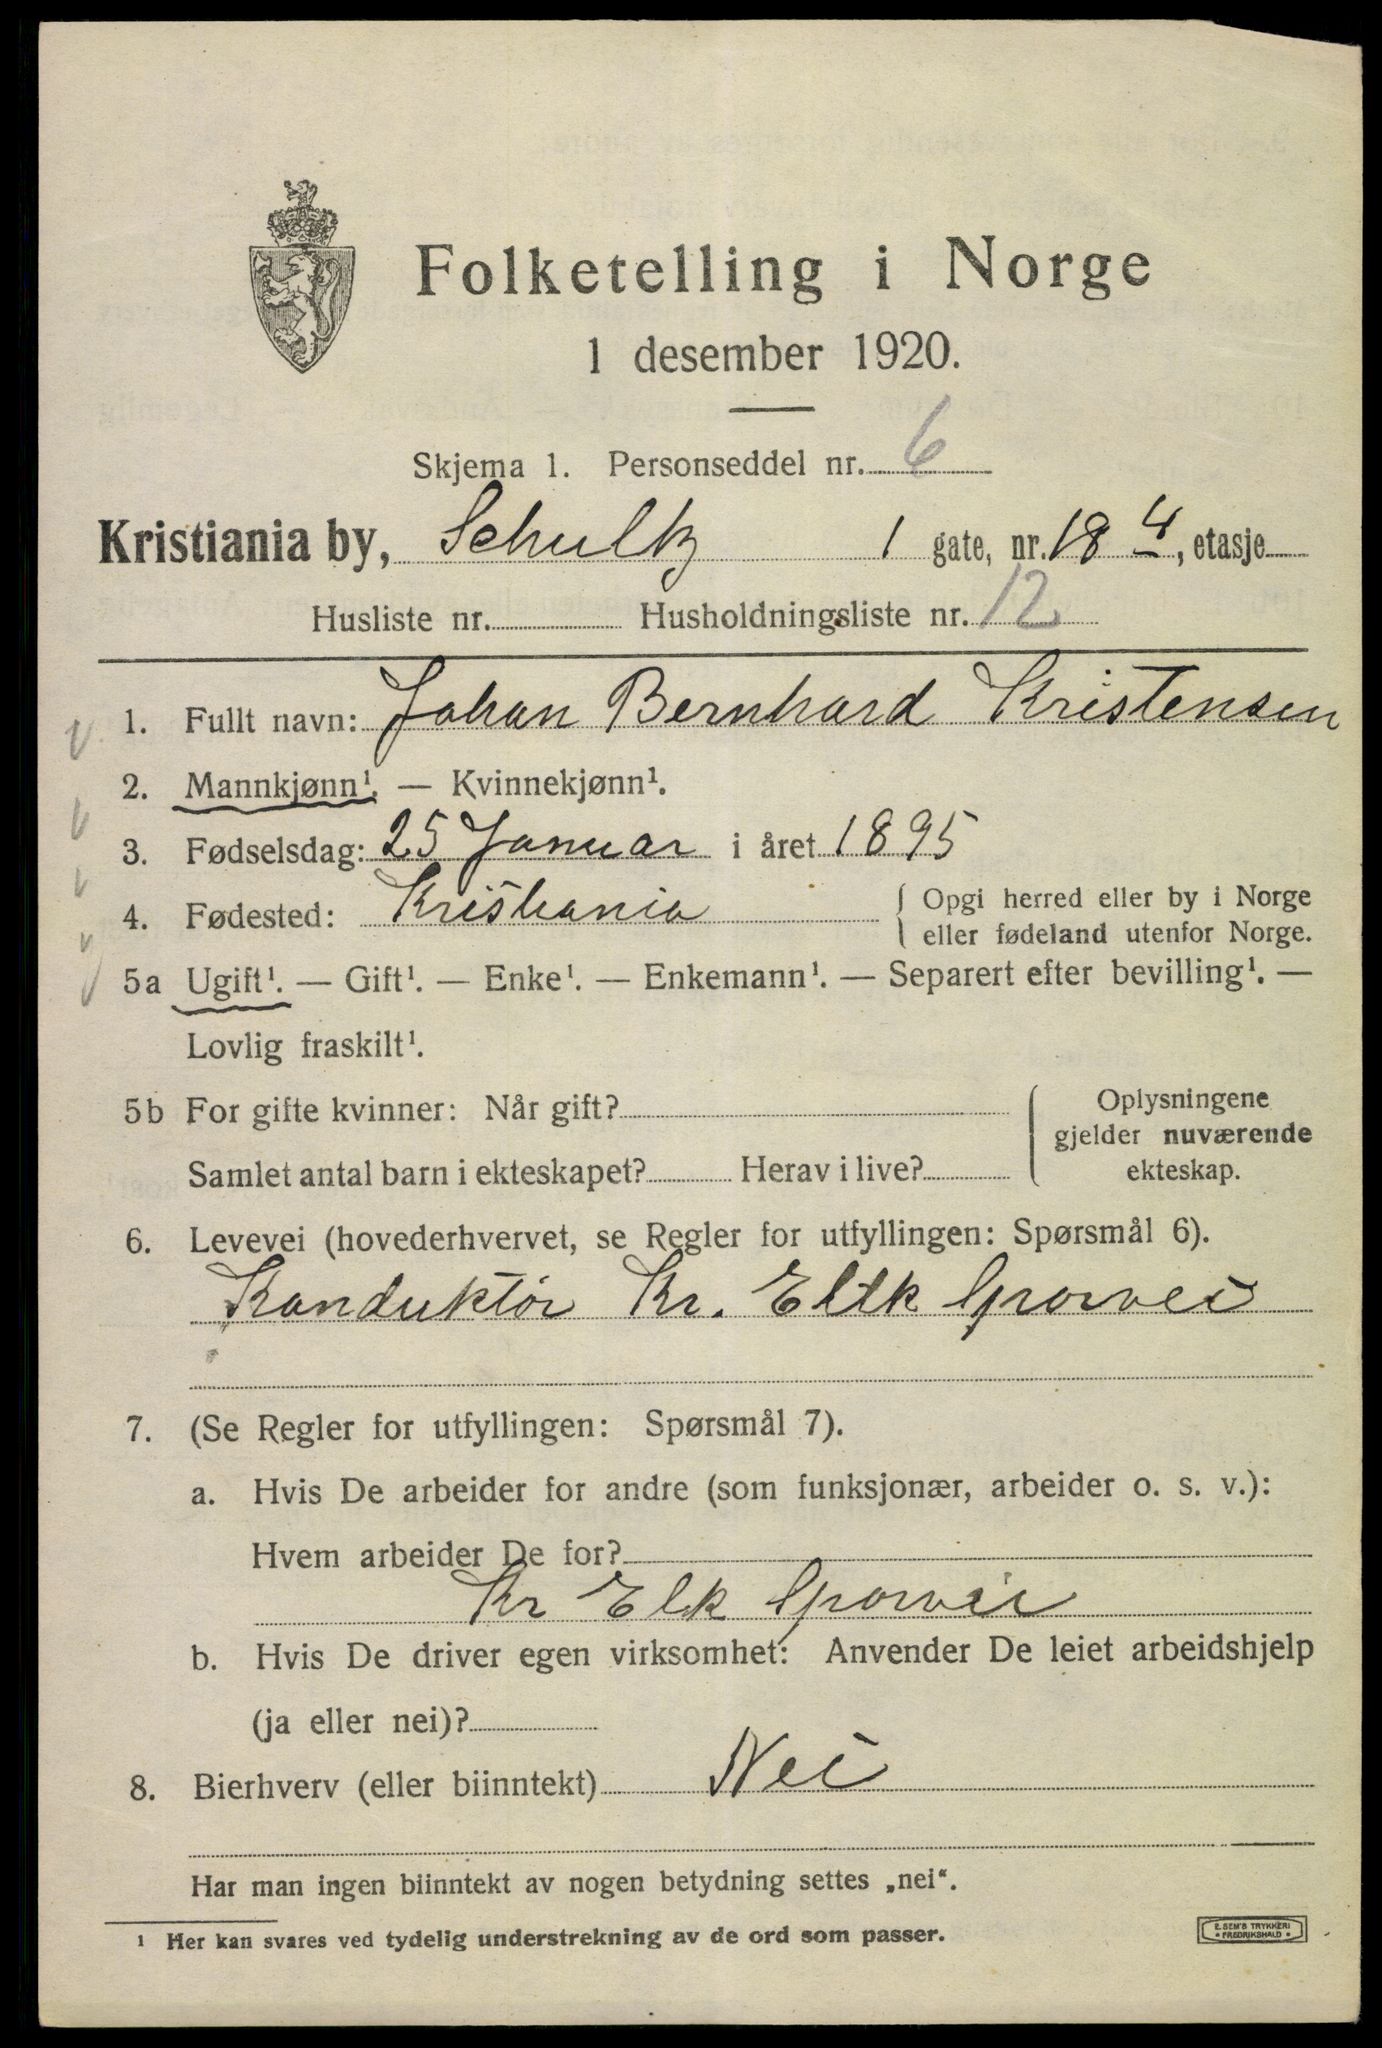 Folketelling i Norge
1 desember 1920.
Skjema 1. Personseddel nr. 6
Kristiania by, Schultz 1 gate, nr. 18 4, etasje
Husliste nr. Husholdningsliste nr. 12
1. Fullt navn: Johan Bernhard Kristensen
2. Mannkjønn¹. — Kvinnekjønn¹.
3. Fødselsdag: 25 Januar i året 1895
4. Fødested: Kristiania { Opgi herred eller by i Norge
eller fødeland utenfor Norge.
5a Ugift¹. — Gift¹. — Enke¹. — Enkemann¹. — Separert efter bevilling¹. —
Lovlig fraskilt¹.
5b For gifte kvinner: Når gift? { Oplysningene
gjelder nuværende
Samlet antal barn i ekteskapet? Herav i live? ekteskap.
6. Levevei (hovederhvervet, se Regler for utfyllingen: Spørsmål 6).
Konduktør Kr. Eltk Sporvei
7. (Se Regler for utfyllingen: Spørsmål 7).
a. Hvis De arbeider for andre (som funksjonær, arbeider o. s. v.):
Hvem arbeider De for?
Kr Elk Sporvei
b. Hvis De driver egen virksomhet: Anvender De leiet arbeidshjelp
(ja eller nei)?
8. Bierhverv (eller biinntekt) Nei
Har man ingen biinntekt av nogen betydning settes „nei“.
¹ Her kan svares ved tydelig understrekning av de ord som passer.
E. SEM'S TRYKKERI
• FREDRIKSHALD •